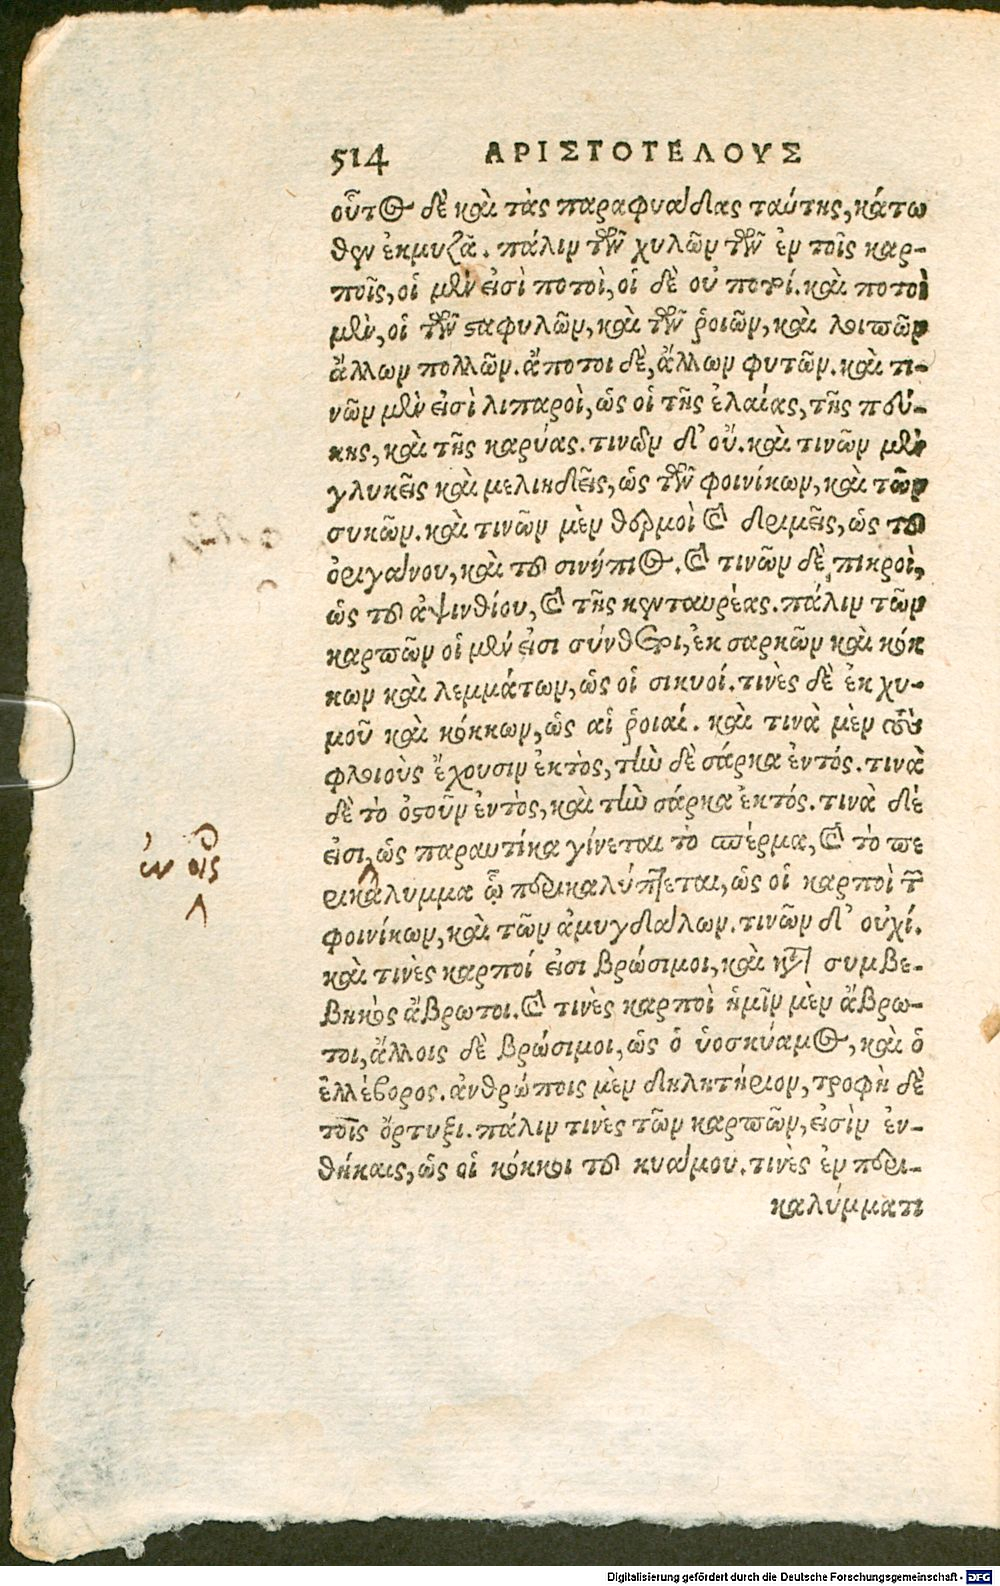 514 ΑΡΙΣΤΟΤΕΛΟΥΣ
οὗτος δὲ καὶ τὰς παραφυάδας ταύτης, κάτω
θεν ἐκμυζᾷ. πάλιν τῶν χυλῶν τῶν ἐν τοῖς καρ-
ποῖς, οἱ μέν εἰσὶ ποτοὶ, οἱ δὲ οὐ ποτοί. καὶ ποτοὶ
μὲν, οἱ τῶν σαφυλῶν, καὶ τῶν ῥοιῶν, καὶ λοιπῶν
ἄλλων πολλῶν. ἄποτοι δὲ, ἄλλων φυτῶν. καὶ τι-
νῶν μέν εἰσὶ λιπαροὶ, ὡς οἱ τῆς ἐλαίας, τῆς πεύ-
κης, καὶ τῆς καρύας. τινῶν δ' οὔ. καὶ τινῶν μὲν
γλυκεῖς καὶ μελιηδεῖς, ὡς τῶν φοινίκων, καὶ τῶν
συκῶν. καὶ τινῶν μὲν θερμοὶ καὶ δριμεῖς, ὡς τοῦ
ὀριγάνου, καὶ τοῦ σινήπιος. καὶ τινῶν δὲ πικροὶ,
ὡς τοῦ ἀψινθίου, καὶ τῆς κενταυρέας. πάλιν τῶν
καρπῶν οἱ μέν εἰσι σύνθετοι, ἐκ σαρκῶν καὶ κόκ
κων καὶ λεμμάτων, ὡς οἱ σικυοί. τινὲς δὲ ἐκ χυ-
μοῦ καὶ κόκκων, ὡς αἱ ῥοιαί. καὶ τινὰ μὲν τοὺς
φλοιοὺς ἔχουσιν ἐκτὸς, τὴν δὲ σάρκα ἐντός. τινὰ
δὲ τὸ ὀστοῦν ἐντὸς, καὶ τὴν σάρκα ἐκτός. τινὰ δέ
εἰσι, ὡς παραυτίκα γίνεται τὸ σπέρμα, καὶ τὸ πε
ἐν οἷς
ρικάλυμμα ᾧ περικαλύπτεται, ὡς οἱ καρποὶ τῶν
φοινίκων, καὶ τῶν ἀμυγδάλων. τινῶν δ' οὐχί.
καὶ τινὲς καρποί εἰσι βρώσιμοι, καὶ κατὰ συμβε-
βηκὸς ἄβρωτοι. καὶ τινὲς καρποὶ ἡμῖν μὲν ἄβρω-
τοι, ἄλλοις δὲ βρώσιμοι, ὡς ὁ ὑοσκύαμος, καὶ ὁ
ἑλλέβορος. ἀνθρώποις μὲν δηλητήριον, τροφὴ δὲ
τοῖς ὄρτυξι. πάλιν τινὲς τῶν καρπῶν, εἰσὶν ἐν-
θήκαις, ὡς οἱ κόκκοι τοῦ κυάμου. τινὲς ἐν περι-
καλύμματι
Digitalisierung gefördert durch die Deutsche Forschungsgemeinschaft - DFG